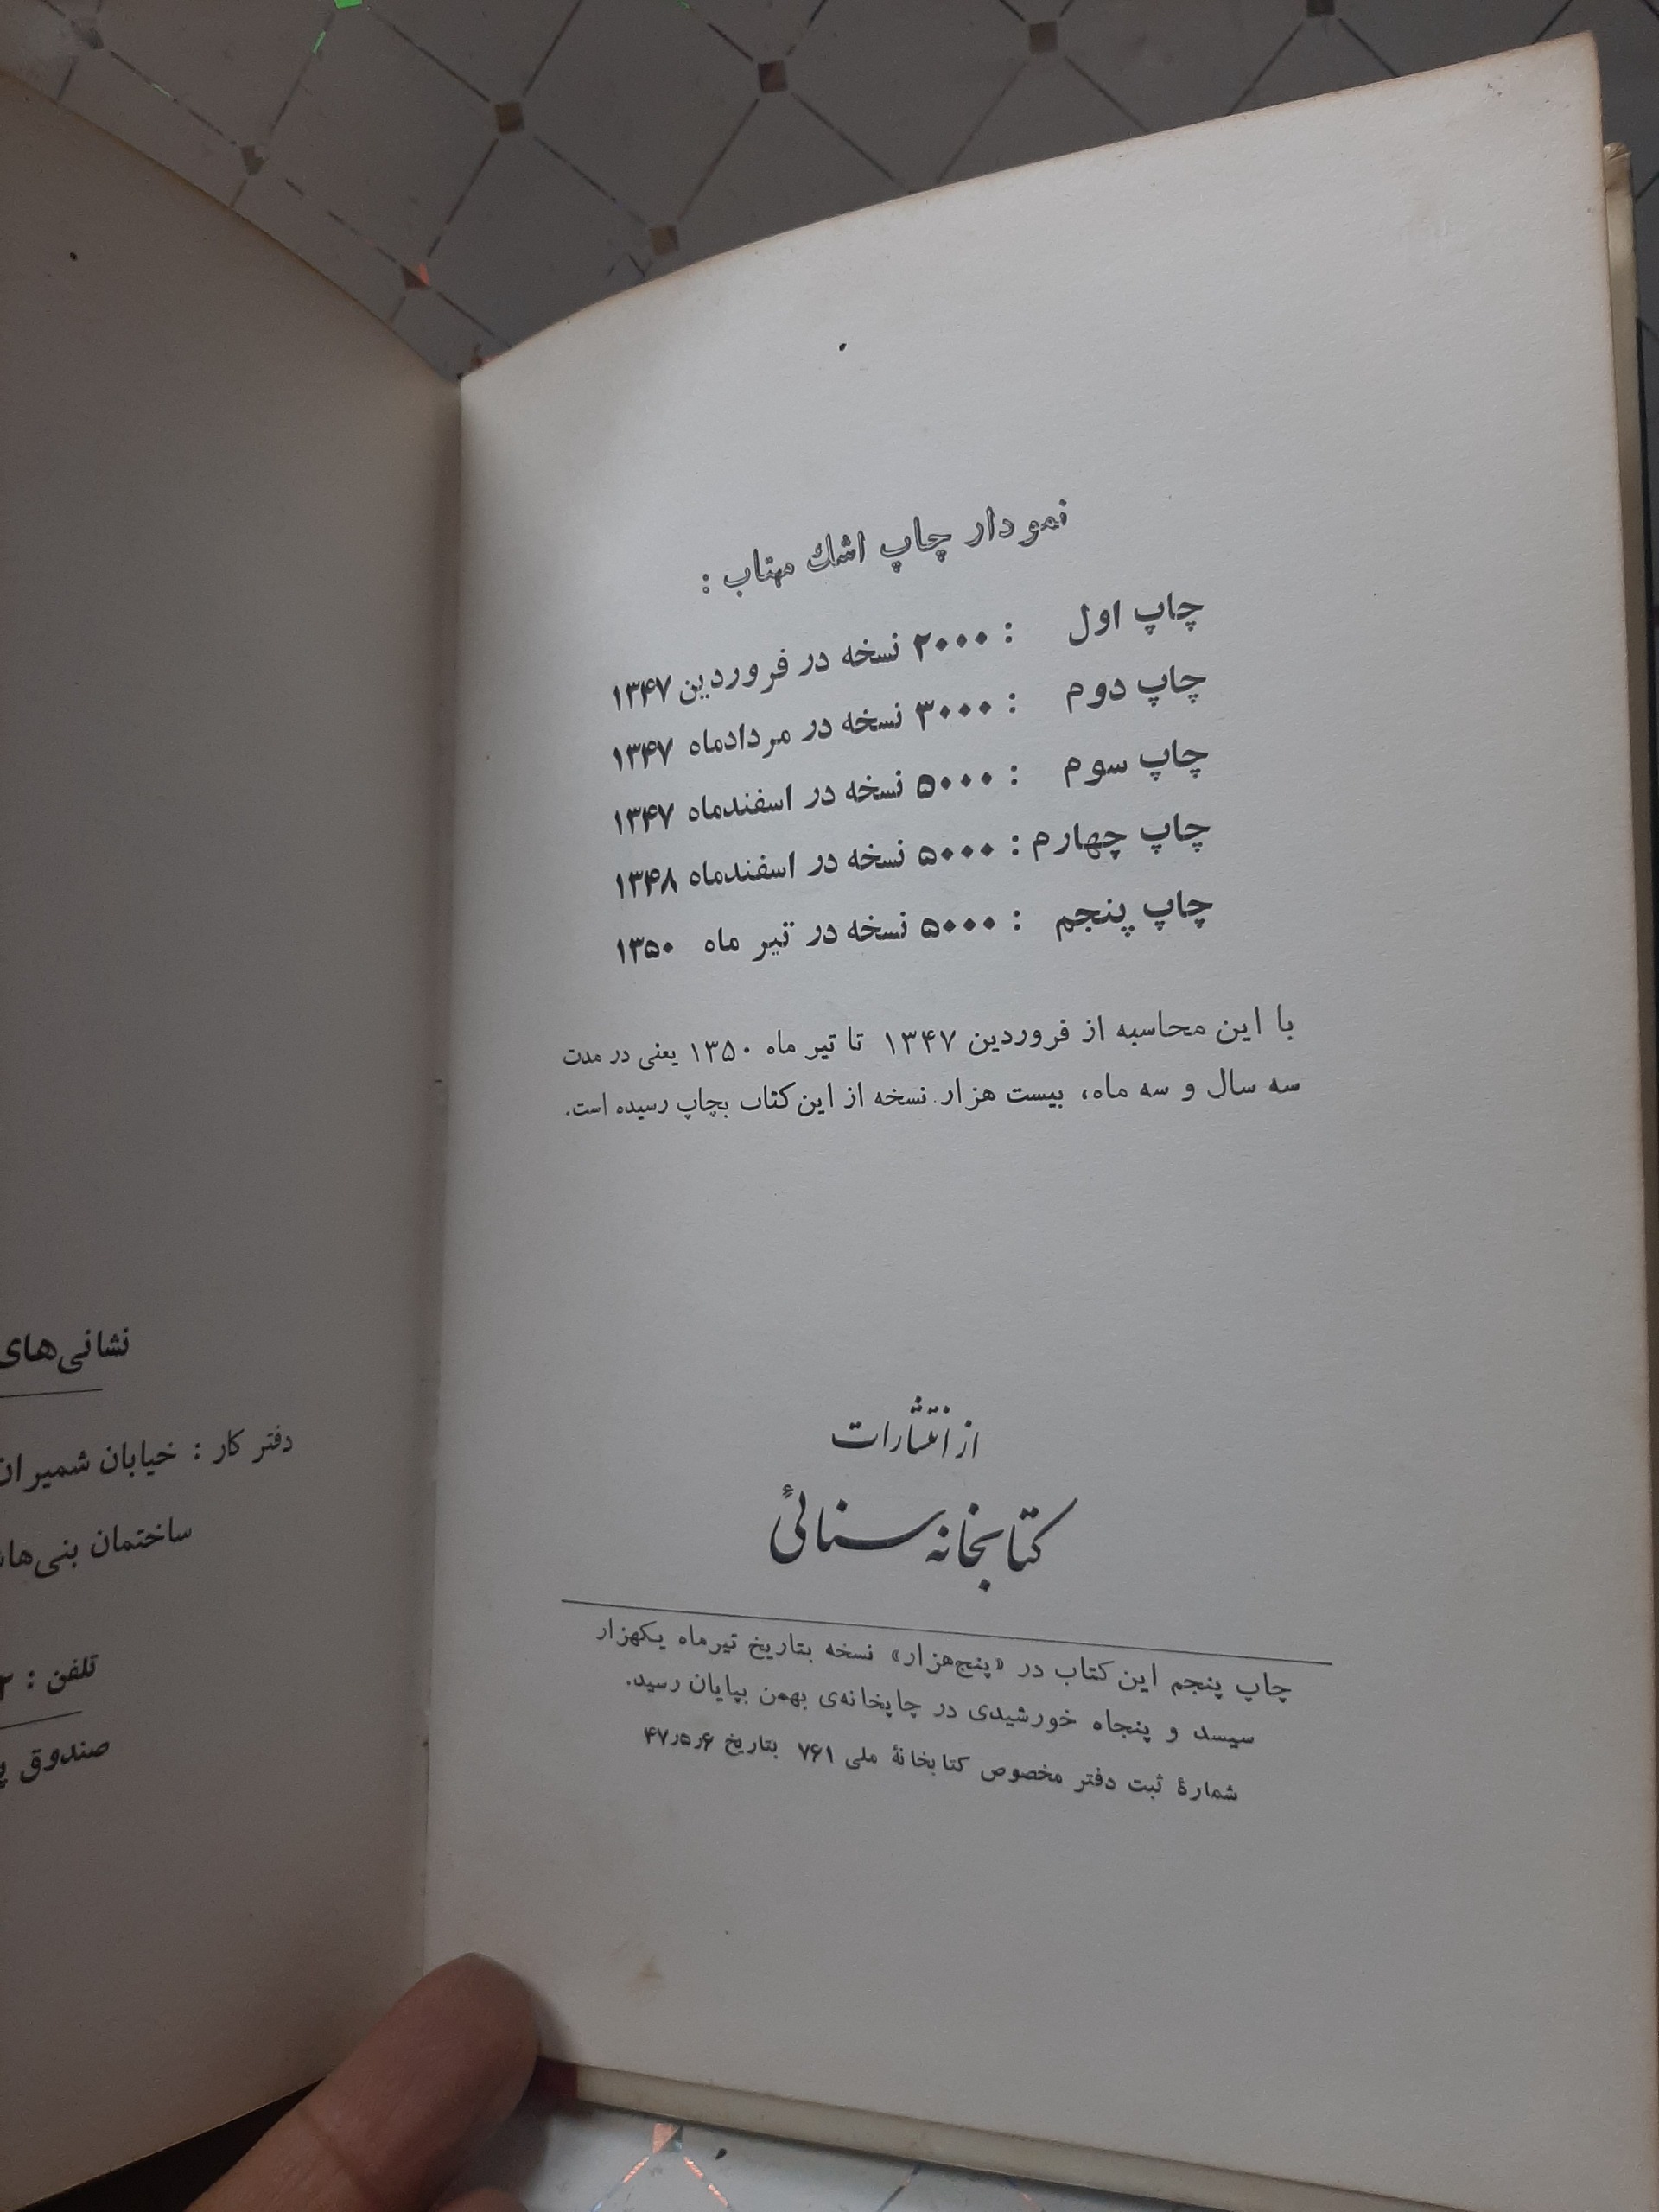 نمودار چاپ اشك مهتاب :
چاپ اول : ۲۰۰۰ نسخه در فروردین ۱۳۴۷
چاپ دوم : ۳۰۰۰ نسخه در مردادماه ۱۳۴۷
چاپ سوم : ۵۰۰۰ نسخه در اسفندماه ۱۳۴۷
چاپ چهارم : ۵۰۰۰ نسخه در اسفندماه ۱۳۴۸
چاپ پنجم : ۵۰۰۰ نسخه در تیر ماه ۱۳۵۰
با این محاسبه از فروردین ۱۳۴۷ تا تیر ماه ۱۳۵۰ یعنی در مدت
سه سال و سه ماه، بیست هزار نسخه از این کتاب بچاپ رسیده است.
از انتشارات
کتابخانه سنائی
چاپ پنجم این کتاب در «پنج‌هزار» نسخه بتاریخ تیرماه یکهزار
سیسد و پنجاه خورشیدی در چاپخانه‌ی بهمن بپایان رسید.
شمارهٔ ثبت دفتر مخصوص کتابخانهٔ ملی ۷۶۱ بتاریخ ۴۷٫۵٫۶
نشانی‌های
دفتر کار : خیابان شمیران
ساختمان
تلفن :
صندوق